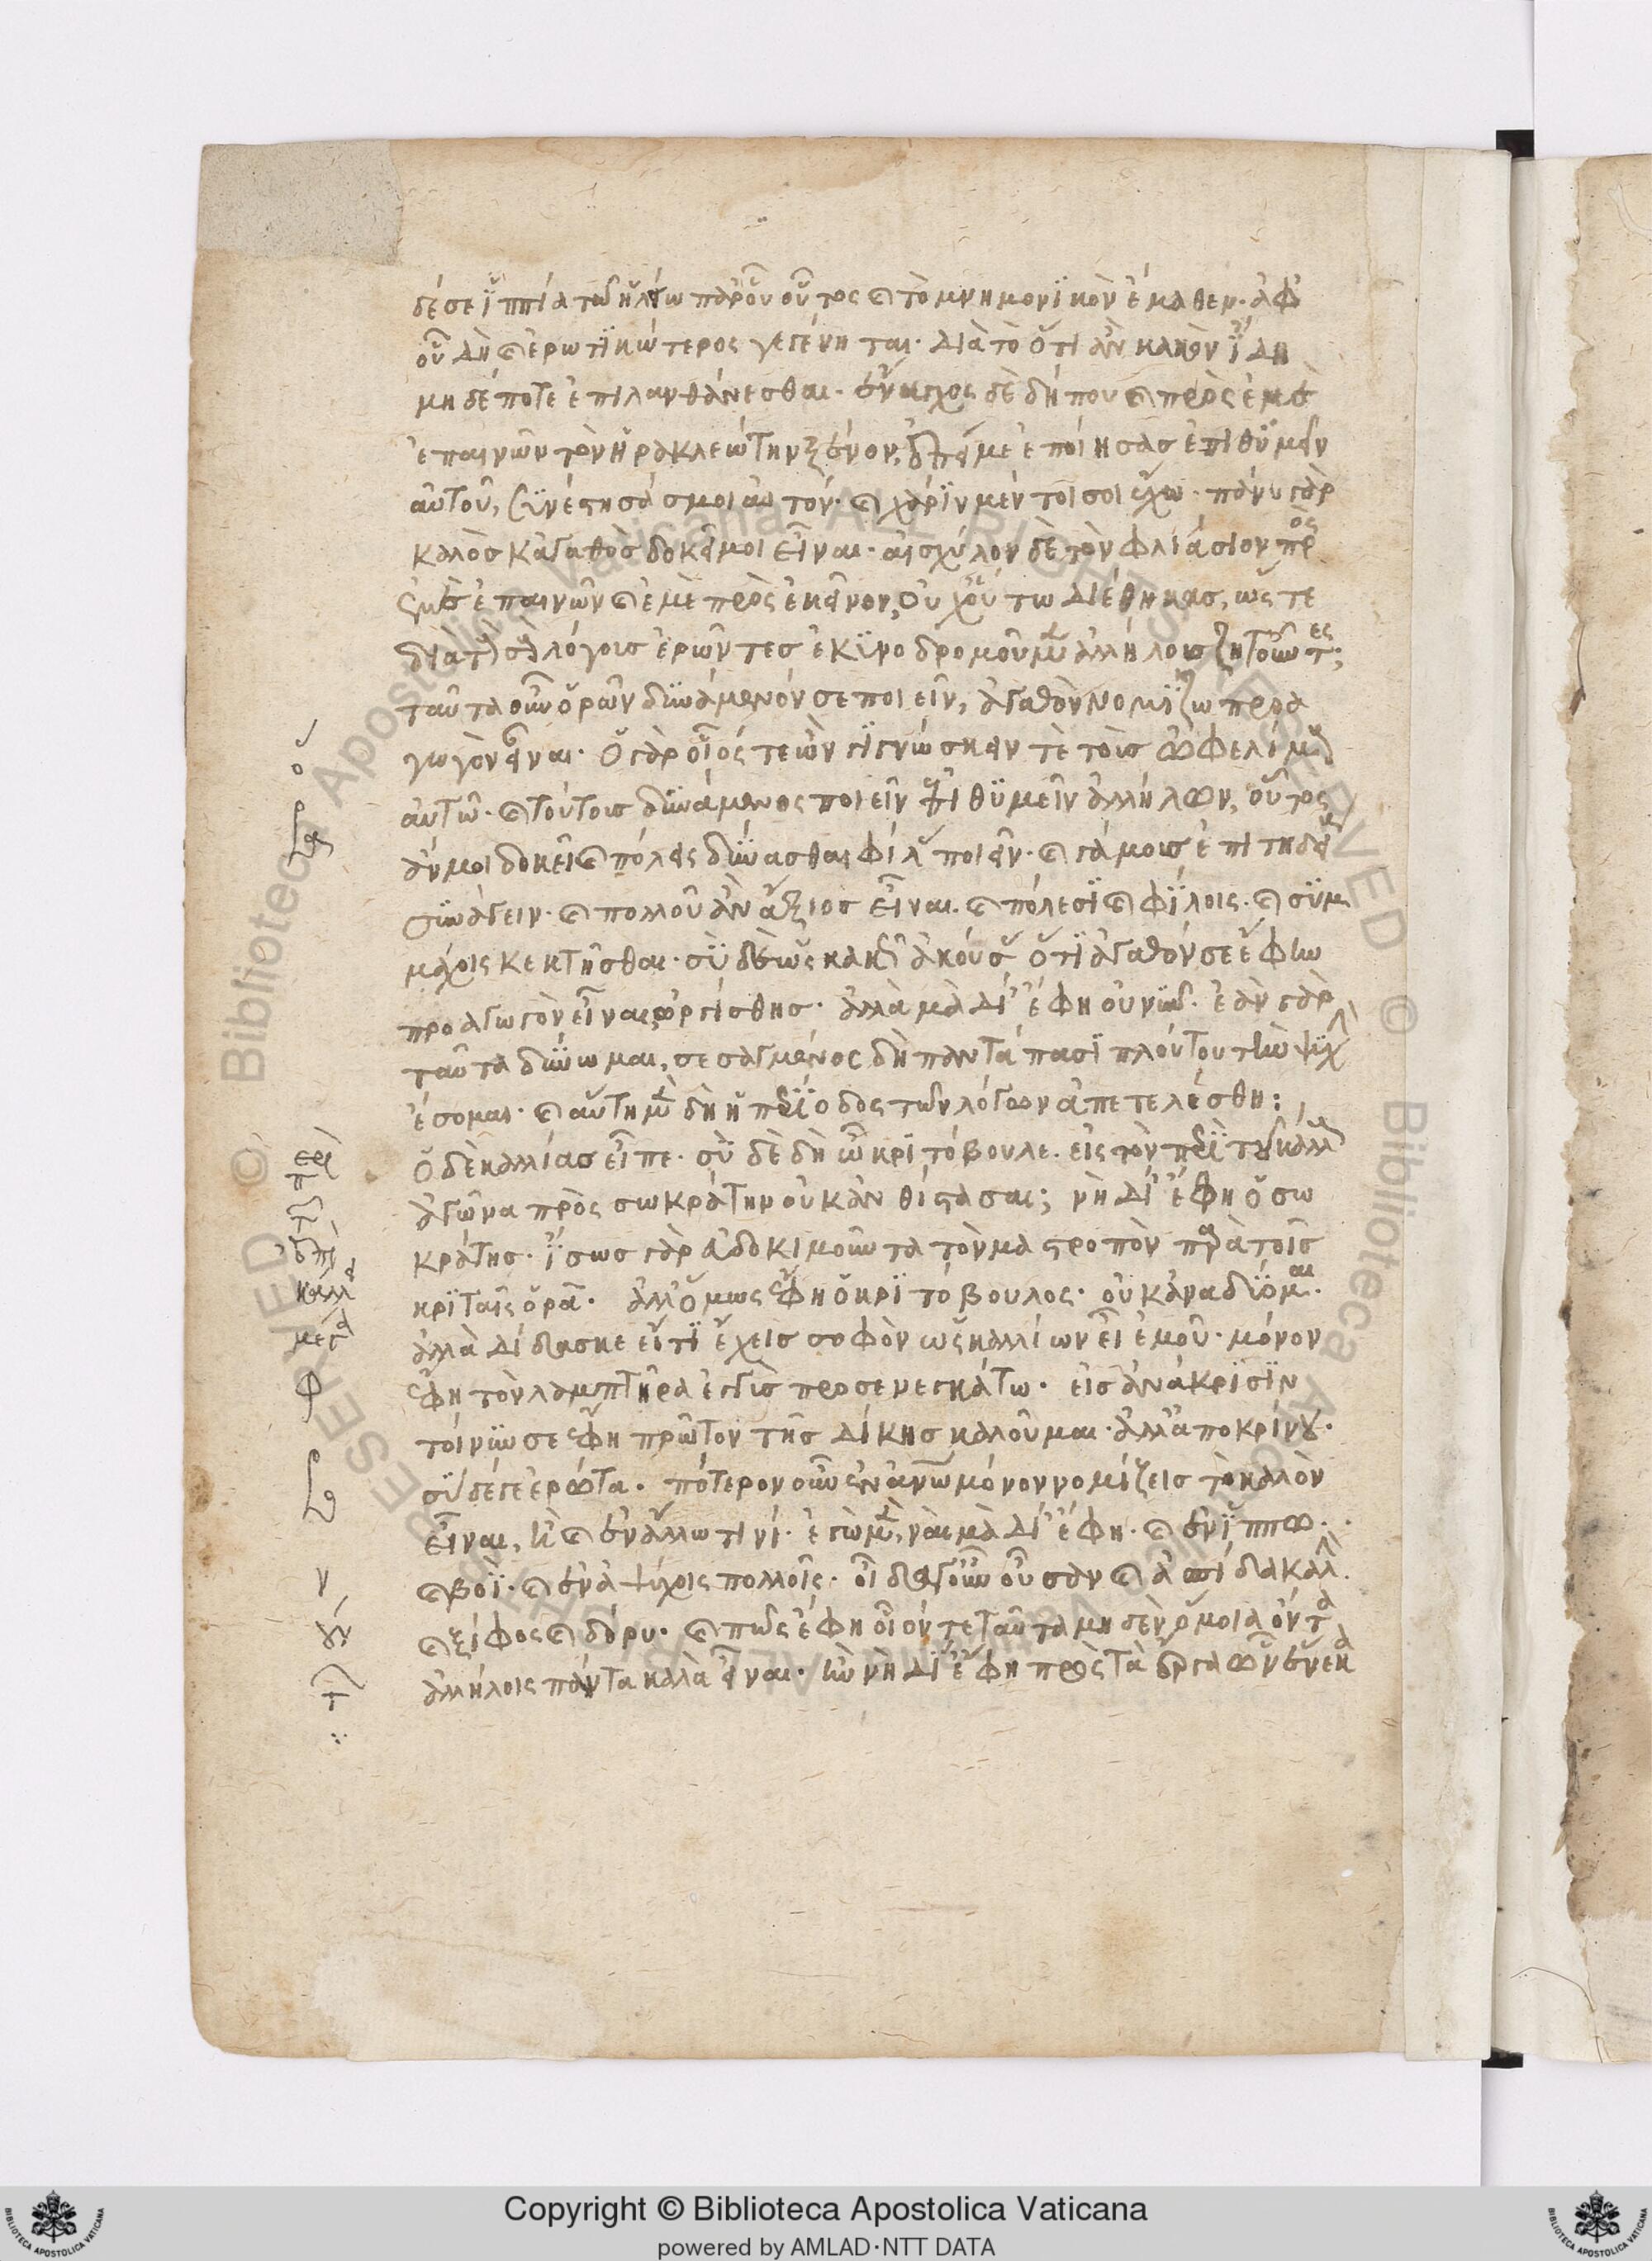 δέ σε ἱππία τῶ ἠλείω παρ' οὗ οὗτος καὶ τὸ μνημονικὸν ἔμαθεν. ἀφ'
οὗ δὴ καὶ ἐρωτικώτερος γεγένηται. διὰ τὸ ὅτι ἂν καλὸν ἴδη
μηδέποτε ἐπιλανθάνεσθαι. ἔναγχος δὲ δήπου καὶ πρὸς ἐμὲ
ἐπαινῶν τὸν ἡρακλεώτην ξένον, ἐπεί με ἐποίησας ἐπιθυμεῖν
αὐτοῦ, συνέστησάς μοι αὐτόν. καὶ χάριν μέν τοι σοι ἔχω. πάνυ γὰρ
καλὸς κἀγαθὸς δοκεῖ μοι εἶναι. αἰσχύλον δὲ τὸν φλιάσιον πρὸς
ἐμὲ ἐπαινῶν καὶ ἐμὲ πρὸς ἐκεῖνον, οὐχ οὕτω διέθηκας, ὥστε
διὰ τοὺς σοὺς λόγους ἐρῶντες ἐκυνοδρομοῦμεν ἀλλήλους ζητοῦντες;
ταῦτα οὖν ὁρῶν δυνάμενόν σε ποιεῖν, ἀγαθὸν νομίζω προα
γωγὸν εἶναι. ὁ γὰρ οἷός τε ὢν γιγνώσκειν τὲ τοὺς ὠφελίμους
αὐτῶ. καὶ τούτους δυνάμενος ποιεῖν ἐπιθυμεῖν ἀλλήλων, οὗτος
ἄν μοι δοκεῖ καὶ πόλεις δύνασθαι φίλας ποιεῖν. καὶ γάμους ἐπιτηδείους
συνάγειν. καὶ πολλοῦ ἂν ἄξιος εἶναι. καὶ πόλεσι καὶ φίλοις. καὶ συμ
μάχοις κεκτῆσθαι. σὺ δὲ ὡς κακῶς ἀκούσας ὅτι ἀγαθόν σε ἔφην
προαγωγὸν εἶναι, ὠργίσθης. ἀλλὰ μὰ δί' ἔφη οὐ νῦν. ἐὰν γὰρ
ταῦτα δύνωμαι, σεσαγμένος δὴ παντάπασι πλούτου τὴν ψυχὴν
ἔσομαι. καὶ αὕτη μὲν δὴ ἡ περίοδος τῶν λόγων ἀπετελέσθη:
ὁ δὲ καλλίας εἶπε. σὺ δὲ δὴ ὦ κριτόβουλε. εἰς τὸν περὶ τοῦ κάλλους
ἀγῶνα πρὸς σωκράτην οὐκ ἀνθίστασαι; νὴ δί' ἔφη ὁ σω
κράτης. ἴσως γὰρ εὐδοκιμοῦντα τὸν μαστροπὸν παρὰ τοῖς
κριταῖς ὁρᾶ. ἀλλ' ὅμως ἔφη ὁ κριτόβουλος. οὐκ ἀναδύομαι.
ἀλλὰ δίδασκε εἴ τι ἔχεις σοφὸν ὡς καλλίων εἶ ἐμοῦ. μόνον
ἔφη τὸν λαμπτῆρα ἐγγὺς προσενεγκάτω. εἰς ἀνάκρισιν
τοίνυν σε ἔφη πρῶτον τῆς δίκης καλοῦμαι. ἀλλ' ἀποκρίνου.
σὺ δέ γε ἐρώτα. πότερον οὖν ἐν ἀνθρώπω μόνον νομίζεις τὸ καλὸν
εἶναι, ἢ καὶ ἐν ἄλλω τινί. ἐγὼ μὲν, ναὶ μὰ δί' ἔφη. καὶ ἐν ἵππω.
καὶ βοΐ. καὶ ἐν ἀψύχοις πολλοῖς. οἶδα γοῦν οὖσαν καὶ ἀσπίδα καλήν.
καὶ ξίφος καὶ δόρυ. καὶ πῶς ἔφη οἷόν τε ταῦτα μηδὲν ὅμοια ὄντα
ἀλλήλοις πάντα καλὰ εἶναι. ἢν νὴ δί' ἔφη πρὸς τὰ ἔργα ὧν ἕνεκα